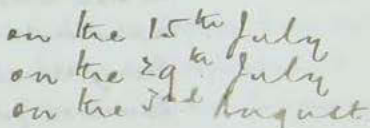 on the 15th July
on the 29th July
on the 3rd August